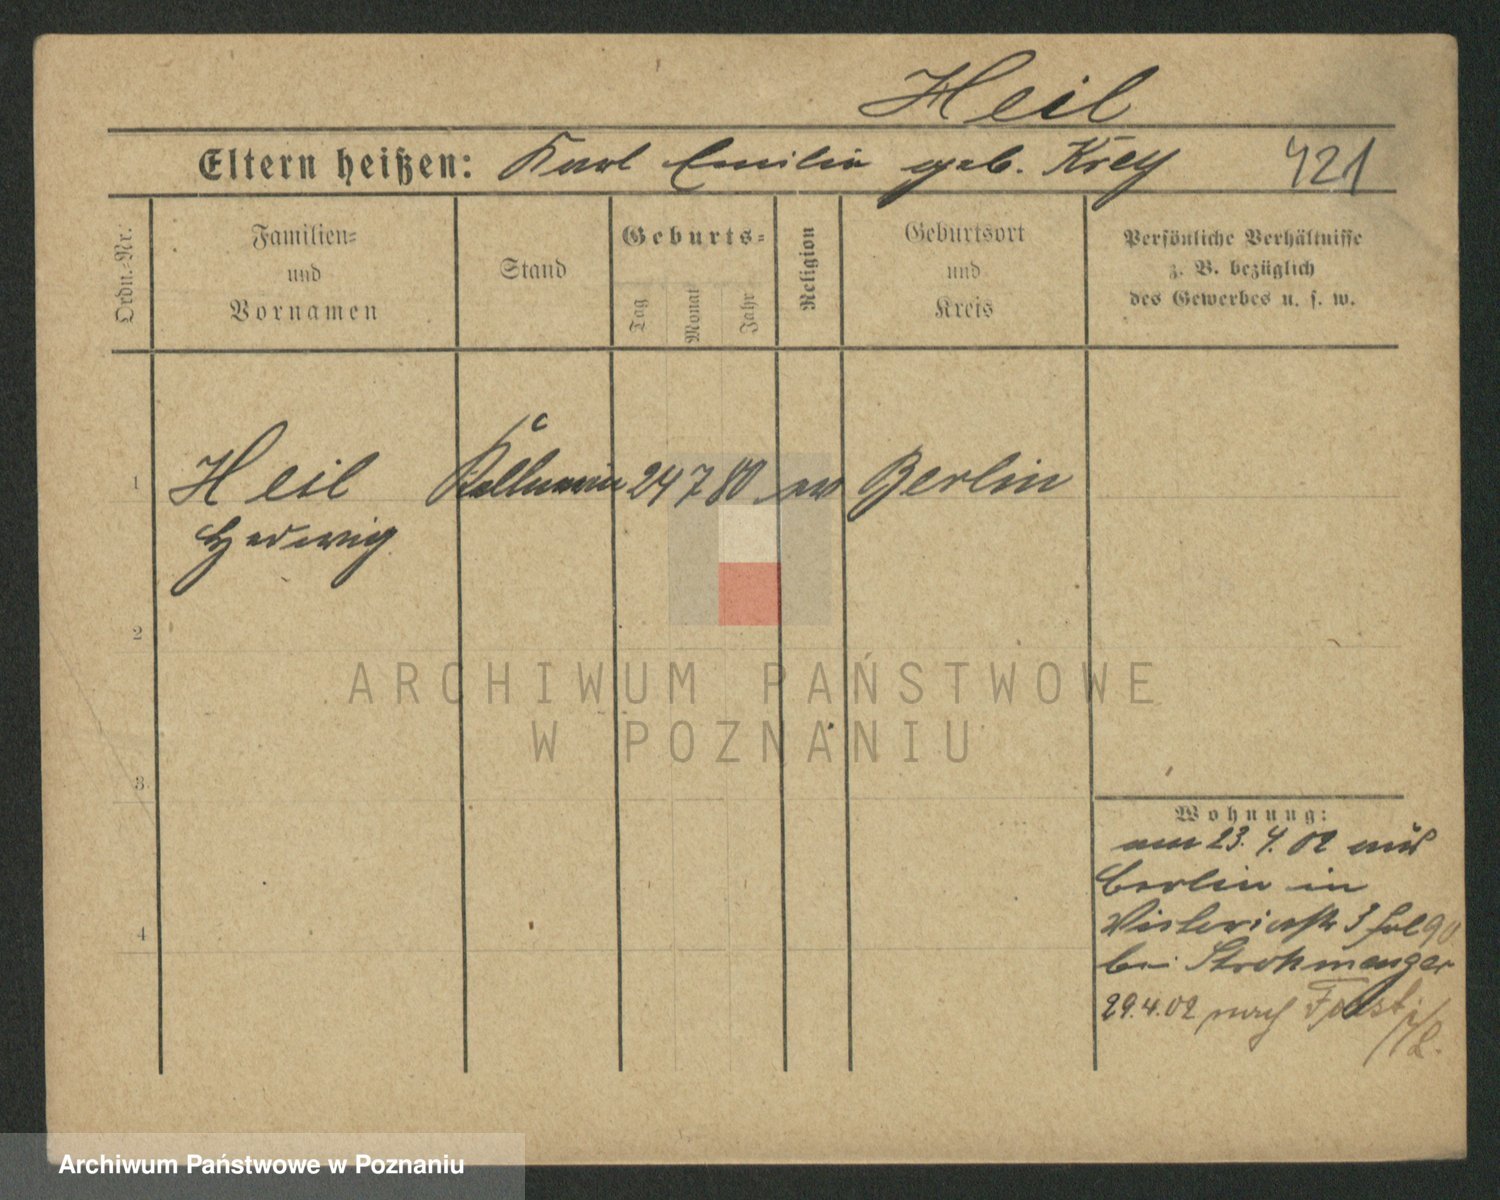 Heil
Eltern heißen: Karl Emilie geb. Krey 421
Ordn.-Nr.
Familien-
und
Vornamen
Stand
Geburts-
Tag
Monat
Jahr
Religion
Geburtsort
und
Kreis
Persönliche Verhältnisse
z. B. bezüglich
des Gewerbes u. s. w.
1 Heil Kellnerin 24 7 80 ev Berlin
Hedwig
2
3
4
Wohnung:
am 23. 4. 02 aus
Berlin in
Victoriastr 3 fol 90
bei Strohmenger
29.4.02 nach Forst i/L.
ARCHIWUM PAŃSTWOWE
W POZNANIU
Archiwum Państwowe w Poznaniu